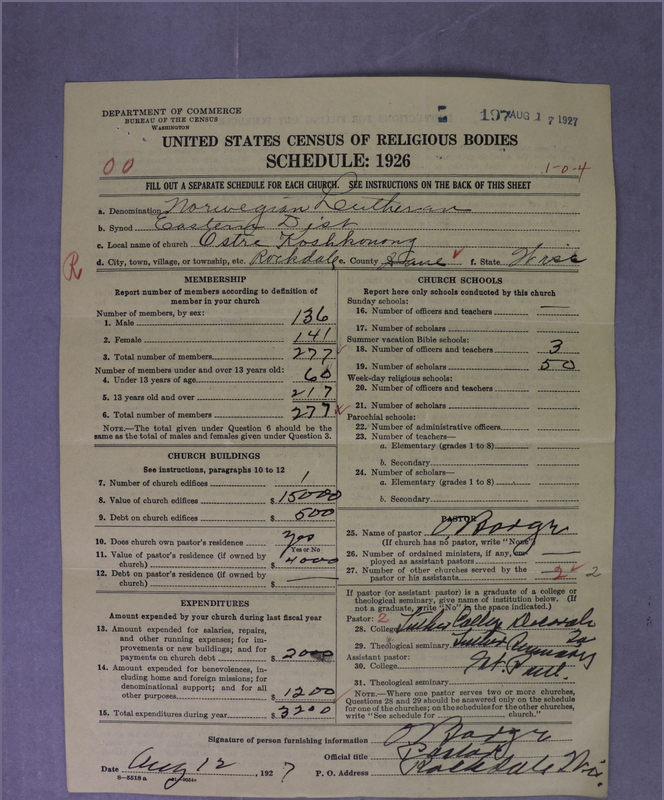 DEPARTMENT OF COMMERCE
BUREAU OF THE CENSUS
WASHINGTON
197 AUG 17 1927
UNITED STATES CENSUS OF RELIGIOUS BODIES
SCHEDULE: 1926
00
1-0-4
FILL OUT A SEPARATE SCHEDULE FOR EACH CHURCH. SEE INSTRUCTIONS ON THE BACK OF THIS SHEET
a. Denomination Norwegian Lutheran
b. Synod Eastern Dist
c. Local name of church Ostre Koshkonong
R
d. City, town, village, or township, etc. Rockdale e. County Dane f. State Wisc
MEMBERSHIP
Report number of members according to definition of
member in your church
Number of members, by sex:
1. Male 136
2. Female 141
3. Total number of members 277
Number of members under and over 13 years old:
4. Under 13 years of age 60
5. 13 years old and over 217
6. Total number of members 277
NOTE.—The total given under Question 6 should be the
same as the total of males and females given under Question 3.
CHURCH BUILDINGS
See instructions, paragraphs 10 to 12
7. Number of church edifices 1
8. Value of church edifices $15000
9. Debt on church edifices $500
10. Does church own pastor's residence? Yes
Yes or No
11. Value of pastor's residence (if owned by
church) $4000
12. Debt on pastor's residence (if owned by
church) $ —
EXPENDITURES
Amount expended by your church during last fiscal year
13. Amount expended for salaries, repairs,
and other running expenses; for im-
provements or new buildings; and for
payments on church debt $2000
14. Amount expended for benevolences, in-
cluding home and foreign missions; for
denominational support; and for all
other purposes $1200
15. Total expenditures during year $3200
CHURCH SCHOOLS
Report here only schools conducted by this church
Sunday schools:
16. Number of officers and teachers —
17. Number of scholars
Summer vacation Bible schools:
18. Number of officers and teachers 3
19. Number of scholars 50
Week-day religious schools:
20. Number of officers and teachers
21. Number of scholars
Parochial schools:
22. Number of administrative officers
23. Number of teachers—
a. Elementary (grades 1 to 8)
b. Secondary
24. Number of scholars—
a. Elementary (grades 1 to 8)
b. Secondary
PASTOR
25. Name of pastor O
(If church has no pastor, write "None")
26. Number of ordained ministers, if any,
ployed as assistant pastors —
27. Number of other churches served by the
pastor or his assistants 2 2
If pastor (or assistant pastor) is a graduate of a college or
theological seminary, give name of institution below. (If
not a graduate, write "No" in the space indicated.)
Pastor: 2
28. College Luther College Decorah
Ia
29. Theological seminary Luther Seminary
Assistant pastor: St. Paul.
30. College
31. Theological seminary
NOTE.—Where one pastor serves two or more churches,
Questions 28 and 29 should be answered only on the schedule
for one of the churches; on the schedules for the other churches,
write "See schedule for church."
Signature of person furnishing information O
Official title Pastor
Date Aug 12, 1927 P. O. Address Rockdale Wis.
S—5518 a